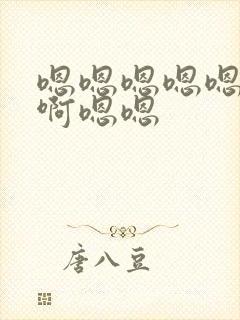 嗯嗯嗯嗯嗯
啊嗯嗯
唐八豆